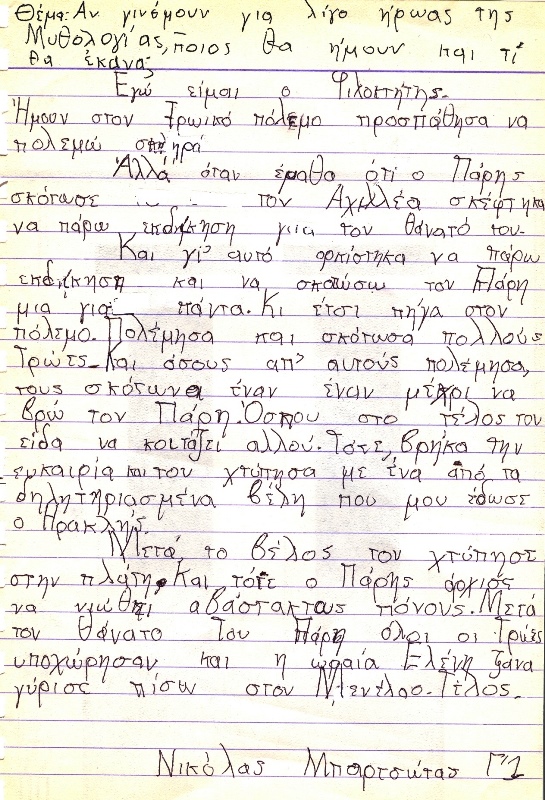 Θέμα: Αν γινόμουν για λίγο ήρωας της
Μυθολογίας, ποιος θα ήμουν και τί
θα έκανα;
Εγώ είμαι ο Φιλοκτήτης.
Ήμουν στον Τρωικό πόλεμο προσπάθησα να
πολεμώ σκληρά
Αλλά όταν έμαθα ότι ο Πάρης
σκότωσε τον Αχιλλέα σκέφτηκα
να πάρω εκδίκηση για τον θάνατό του.
Και γι' αυτό ορκίστηκα να πάρω
εκδίκηση και να σκοτώσω τον Πάρη
μια για πάντα. Κι έτσι πήγα στον
πόλεμο. Πολέμησα και σκότωσα πολλούς
Τρώες. Και όσους απ' αυτούς πολέμησα,
τους σκότωνα έναν έναν μέχρι να
βρω τον Πάρη. Ώσπου στο τέλος τον
είδα να κοιτάζει αλλού. Τότε, βρήκα την
ευκαιρία και τον χτύπησα με ένα από τα
δηλητηριασμένα βέλη που μου έδωσε
ο Ηρακλής.
Μετά το βέλος τον χτύπησε
στην πλάτη. Και τότε ο Πάρης άρχισε
να νιώθει αβάστακτους πόνους. Μετά
τον θάνατο του Πάρη όλοι οι Τρώες
υποχώρησαν και η ωραία Ελένη ξανα
γύρισε πίσω στον Μενέλαο. Τέλος.
Νικόλας Μπαρτσώτας Γ'1